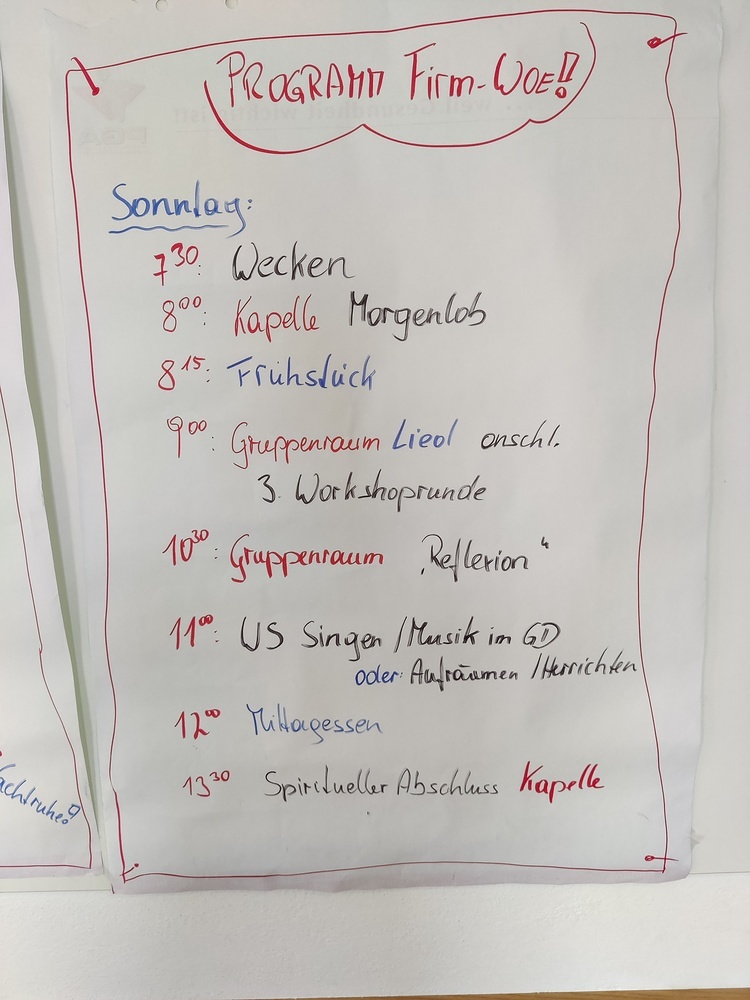 PROGRAMM Firm-WOE!!
Sonntag:
7³⁰: Wecken
8⁰⁰: Kapelle Morgenlob
8¹⁵: Frühstück
9⁰⁰: Gruppenraum Lied anschl.
3. Workshoprunde
10³⁰: Gruppenraum „Reflexion“
11⁰⁰: WS Singen/Musik im GD
oder: Aufräumen/Herrichten
12⁰⁰ Mittagessen
13³⁰ Spiritueller Abschluss Kapelle
achtruhe!